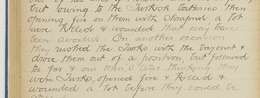 but owing to the Turkish batteries then
opening fire on them with Shrapnel a lot
were killed & wounded that may have
been avoided. On another occasion
they rushed the Turks with the bayonet &
drove them out of a position, but pursued
to far & our men thinking they
were Turks, opened fire & killed &
wounded a lot before they could be